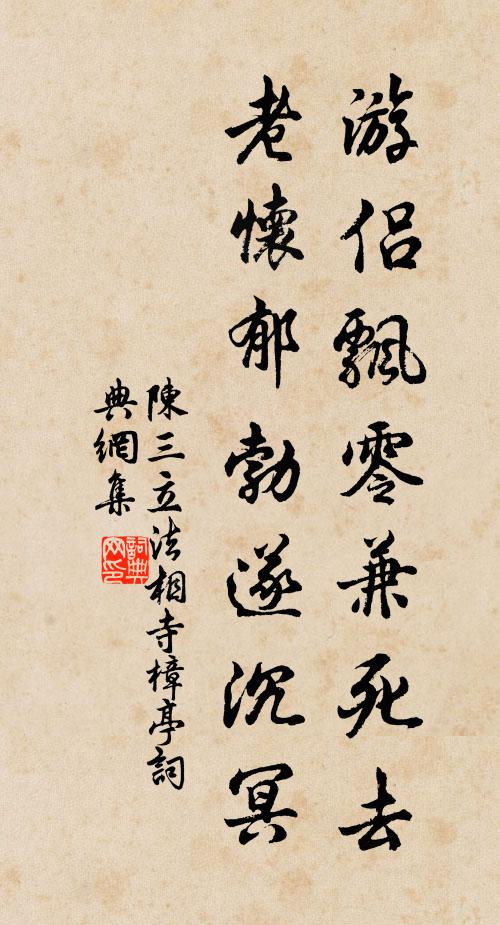 游侣飄零兼死去
老懷郁勃遂沉冥
陳三立法相寺樟亭詞
典網集
詞典網印